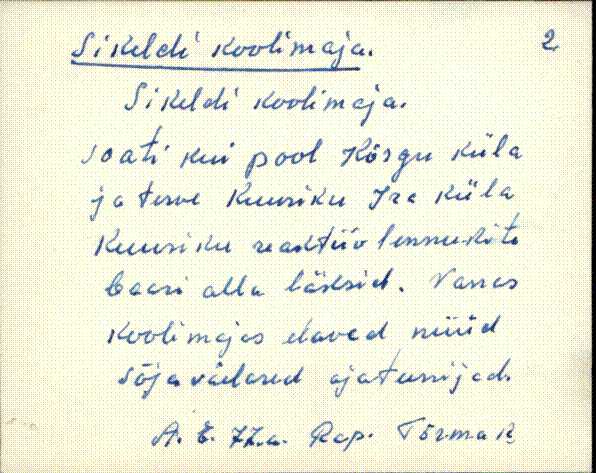 Sikeldi koolimaja. 2
Sikeldi koolimaja.
soati kui pool Kõrgu küla
ja terve Kuusiku Ira küla
Kuusiku reaktiivlennukite
baasi alla läksid. Vanas
koolimajas elavad nüüd
sõjaväelased ajateenijad.
A. E. 77.a. Rap. Tõrmak